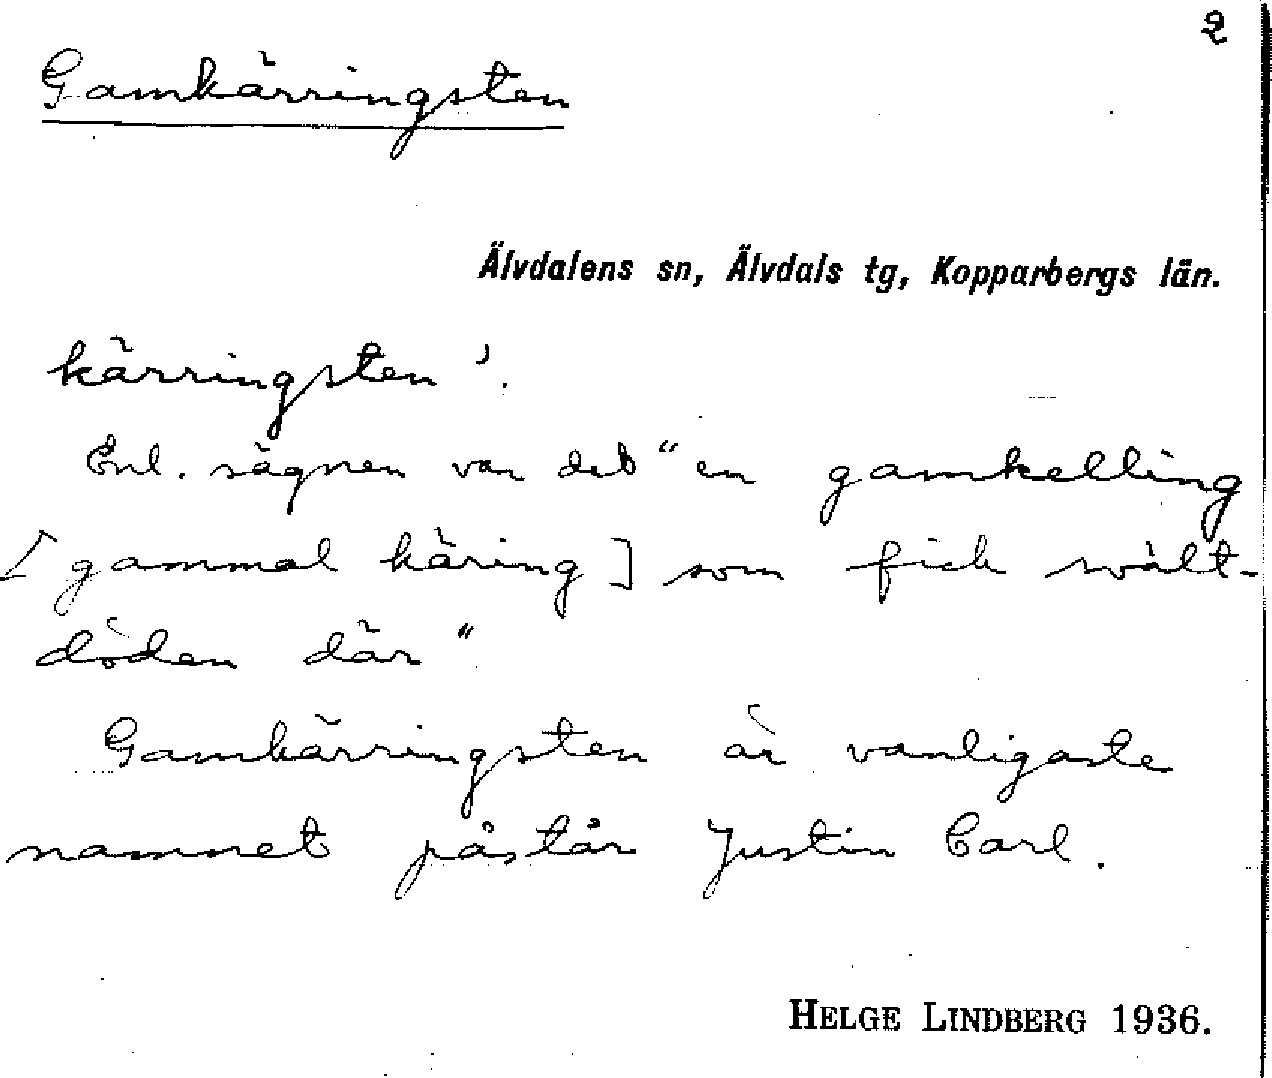 2
Gamkärringsten
Älvdalens sn, Älvdals tg, Kopparbergs län.
kärringsten'.
Enl. sägnen var det "en gamkelling
[gammal käring] som fick svält-
döden där"
Gamkärringsten är vanligaste
namnet påstår Justin Carl.
HELGE LINDBERG 1936.